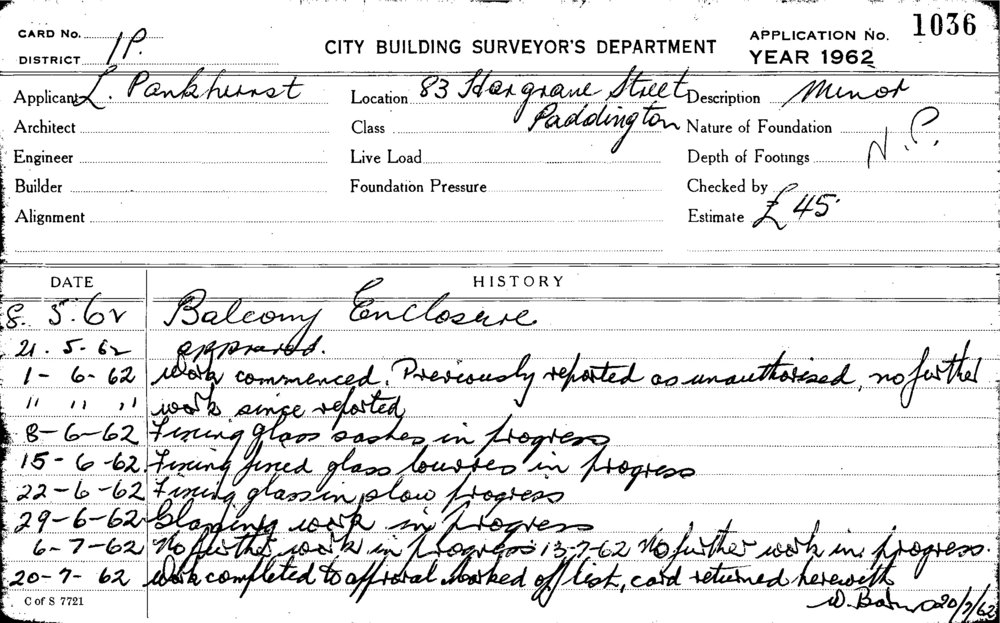 CARD No. 1P. CITY BUILDING SURVEYOR'S DEPARTMENT APPLICATION No. 1036
DISTRICT YEAR 1962
Applicant L. Pankhurst Location 83 Hargrave Street Description Minor
Architect Class Paddington Nature of Foundation
Engineer Live Load Depth of Footings N.P.
Builder Foundation Pressure Checked by
Alignment Estimate £45.
DATE HISTORY
8. 5. 62 Balcony Enclosure
21. 5-62 approved.
1-6-62 work commenced. Previously reported as unauthorised, no further
" " " work since reported
8-6-62 Fixing glass sashes in progress
15-6-62 Fixing fixed glass louvres in progress
22-6-62 Fixing glass in, slow progress
29-6-62 Glazing work in progress
6-7-62 No further work in progress 13-7-62 No further work in progress.
20-7-62 Work completed to approval marked off list, card returned herewith
C of S 7721 W. 20/7/62